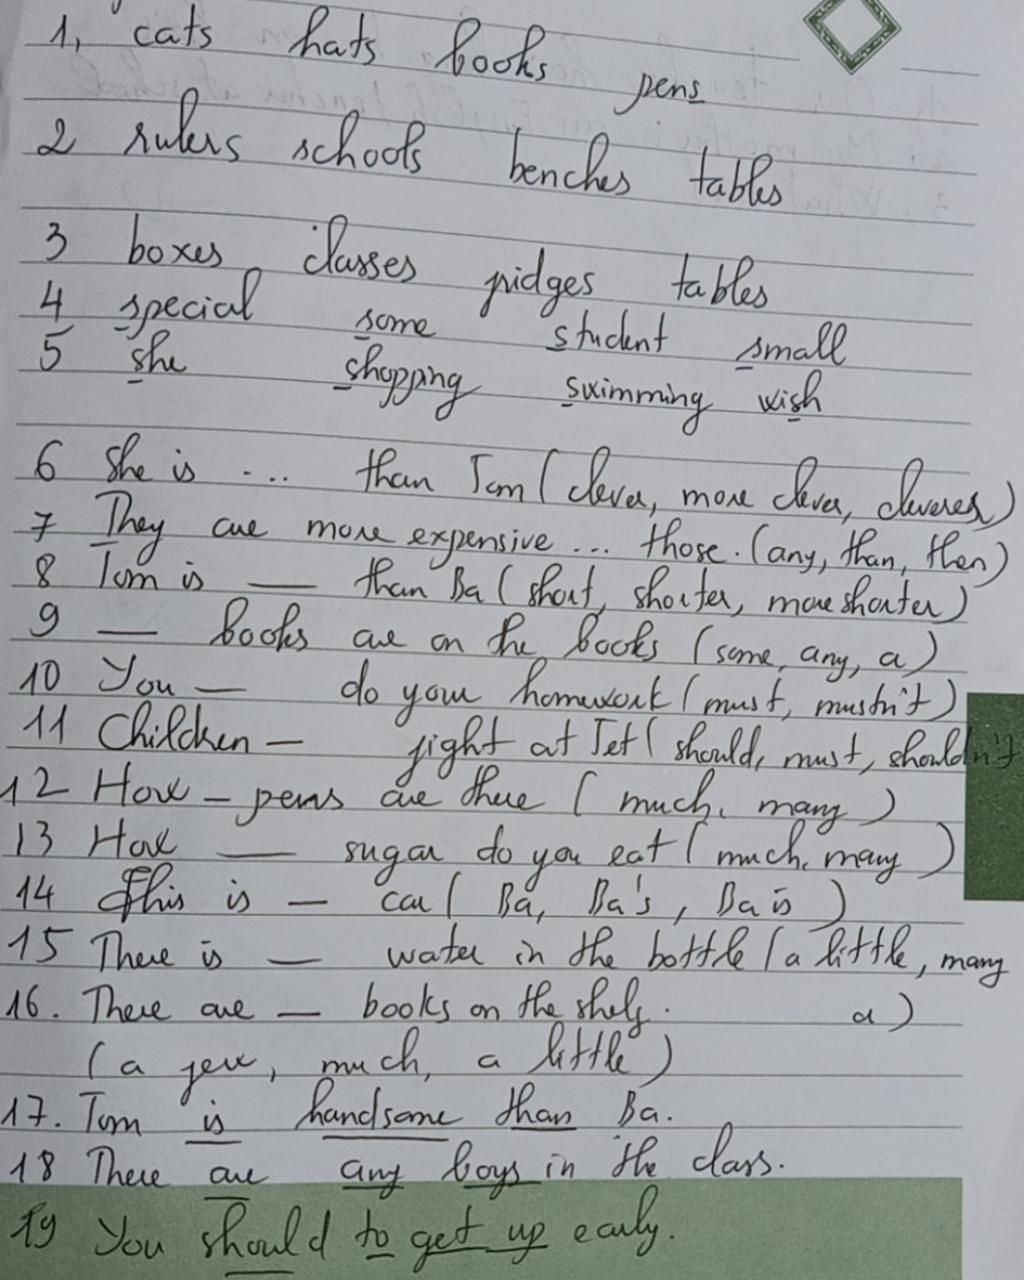 1, cats hats books pens
2 rulers schools benches tables
3 boxes classes fridges tables
4 special some student small
5 she shopping swimming wish
6 She is .... than Tom (clever, more clever, cleverer)
7 They are more expensive ... those. (any, than, then)
8 Tom is — than Ba (short, shorter, more shorter)
9 — books are on the books (some, any, a)
10 You — do your homework (must, mustn't)
11 Children — fight at Tet (should, must, shouldn't
12 How — pens are there (much, many)
13 How — sugar do you eat (much, many)
14 This is — car (Ba, Ba's, Ba is)
15 There is — water in the bottle (a little, many
a)
16. There are — books on the shelf.
(a few, much, a little)
17. Tom is handsome than Ba.
18 There are any boys in the class.
19 You should to get up early.